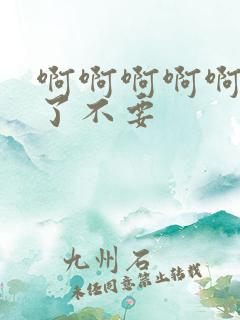 啊啊啊啊啊
了不要
九州石
未经同意禁止转载